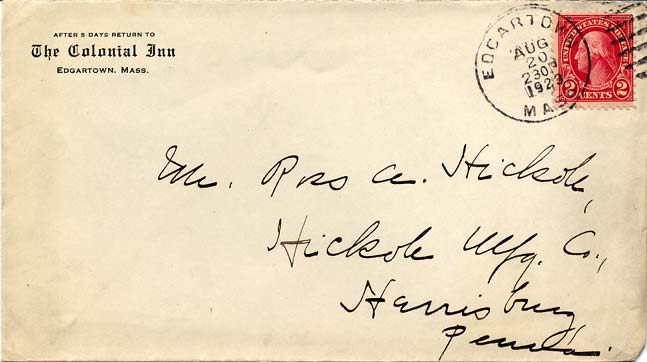 AFTER 5 DAYS RETURN TO
The Colonial Inn
EDGARTOWN, MASS.
EDGARTOWN
AUG
20
230P
192
MAS
UNITED STATES POSTAGE
2 CENTS 2
Mr. Ross A. Hickok,
Hickok Mfg. Co.,
Harrisburg,
Penna.